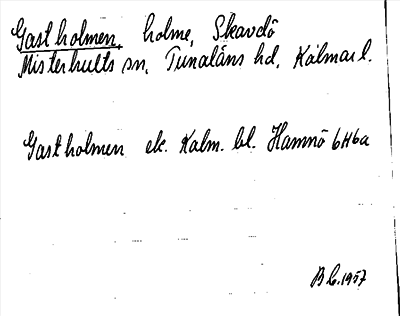 Gastholmen, holme, Skavdö
Misterhults sn, Tunaläns hd, Kalmar l.
Gastholmen ek. Kalm. bl. Hamnö 6H6a
B C. 1957